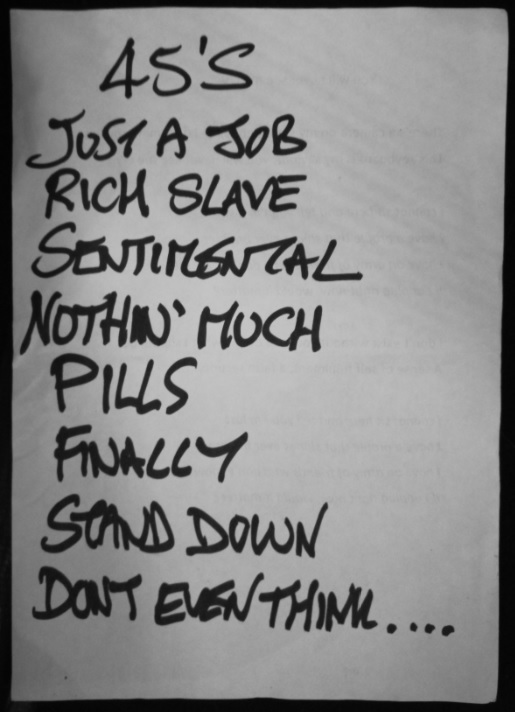 45'S
JUST A JOB
RICH SLAVE
SENTIMENTAL
NOTHIN' MUCH
PILLS
FINALLY
STAND DOWN
DONT EVEN THINK....